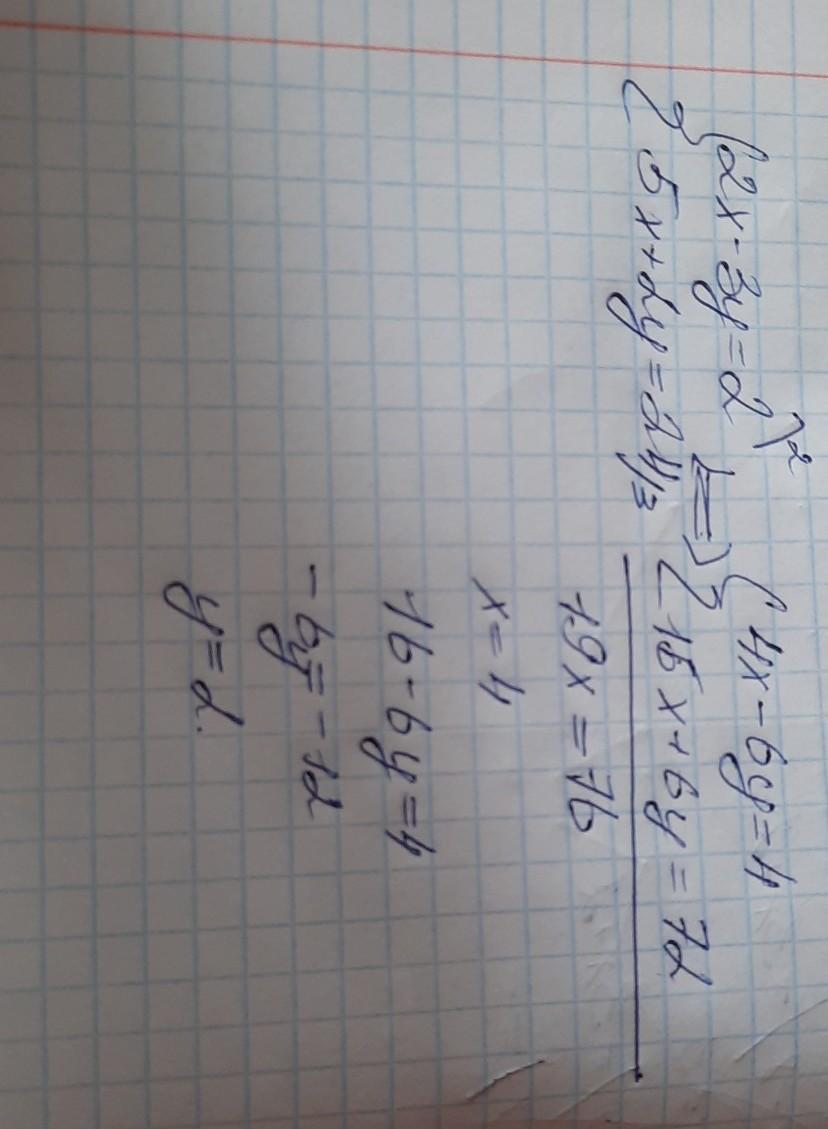 {2x-3y=2 |2
{5x+2y=24 |3
<=>
{4x-6y=4
{15x+6y=72
19x=76
x=4
16-6y=4
-6y=-12
y=2.